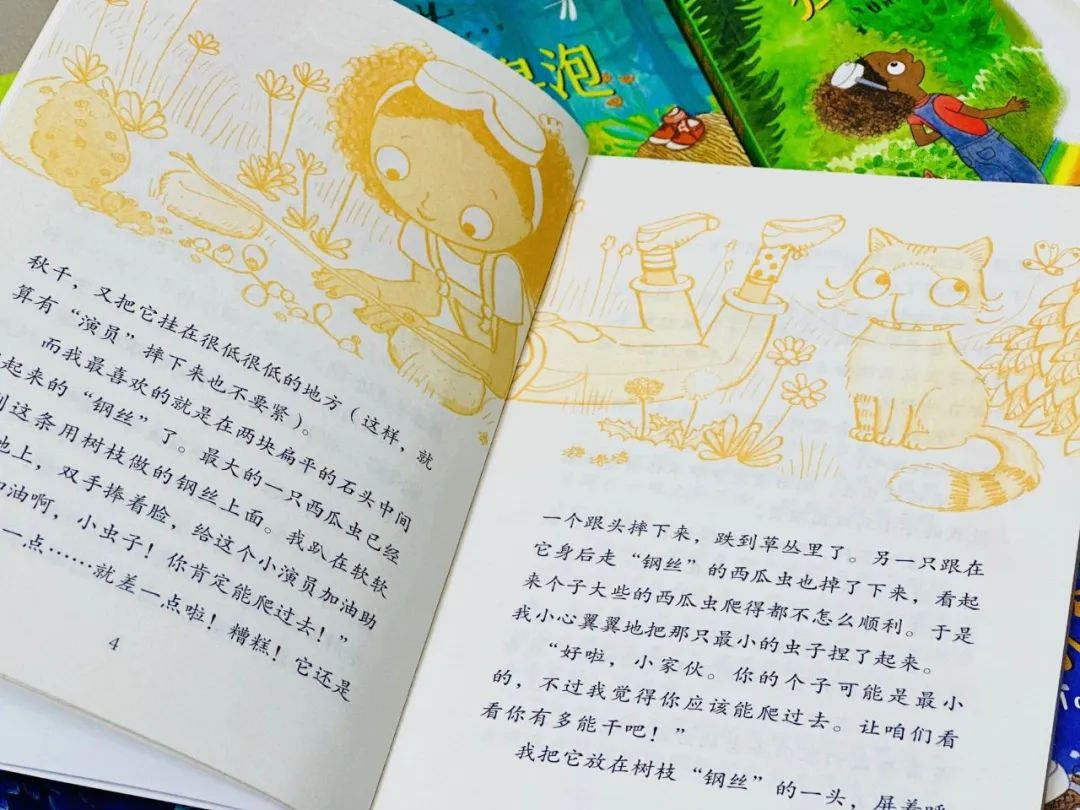 秋千，又把它挂在很低很低的地方（这样，就
算有“演员”摔下来也不要紧）。
而我最喜欢的就是在两块扁平的石头中间
起来的“钢丝”了。最大的一只西瓜虫已经
到这条用树枝做的钢丝上面。我趴在软软
地上，双手捧着脸，给这个小演员加油助
加油啊，小虫子！你肯定能爬过去！”
一点……就差一点啦！糟糕！它还是
4
一个跟头摔下来，跌到草丛里了。另一只跟在
它身后走“钢丝”的西瓜虫也掉了下来，看起
来个子大些的西瓜虫爬得都不怎么顺利。于是
我小心翼翼地把那只最小的虫子捏了起来。
“好啦，小家伙。你的个子可能是最小
的，不过我觉得你应该能爬过去。让咱们看
看你有多能干吧！”
我把它放在树枝“钢丝”的一头，屏着呼
泡